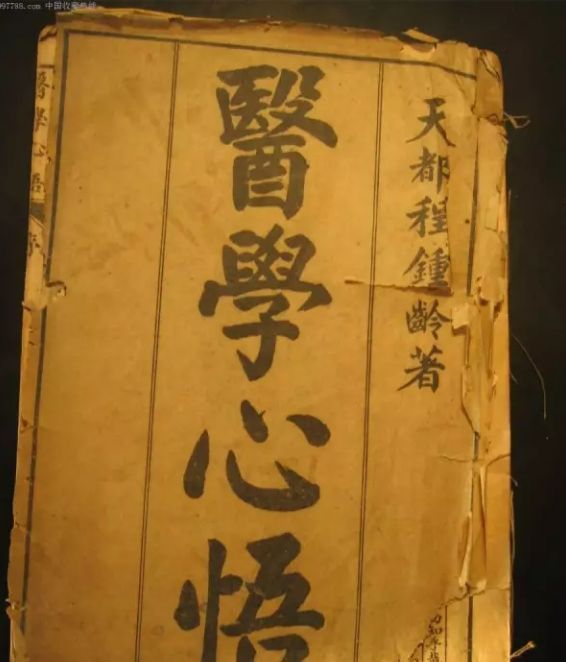 997788.com 中国收藏热线
天都程鍾齡著
醫學心悟
醫學心悟
序